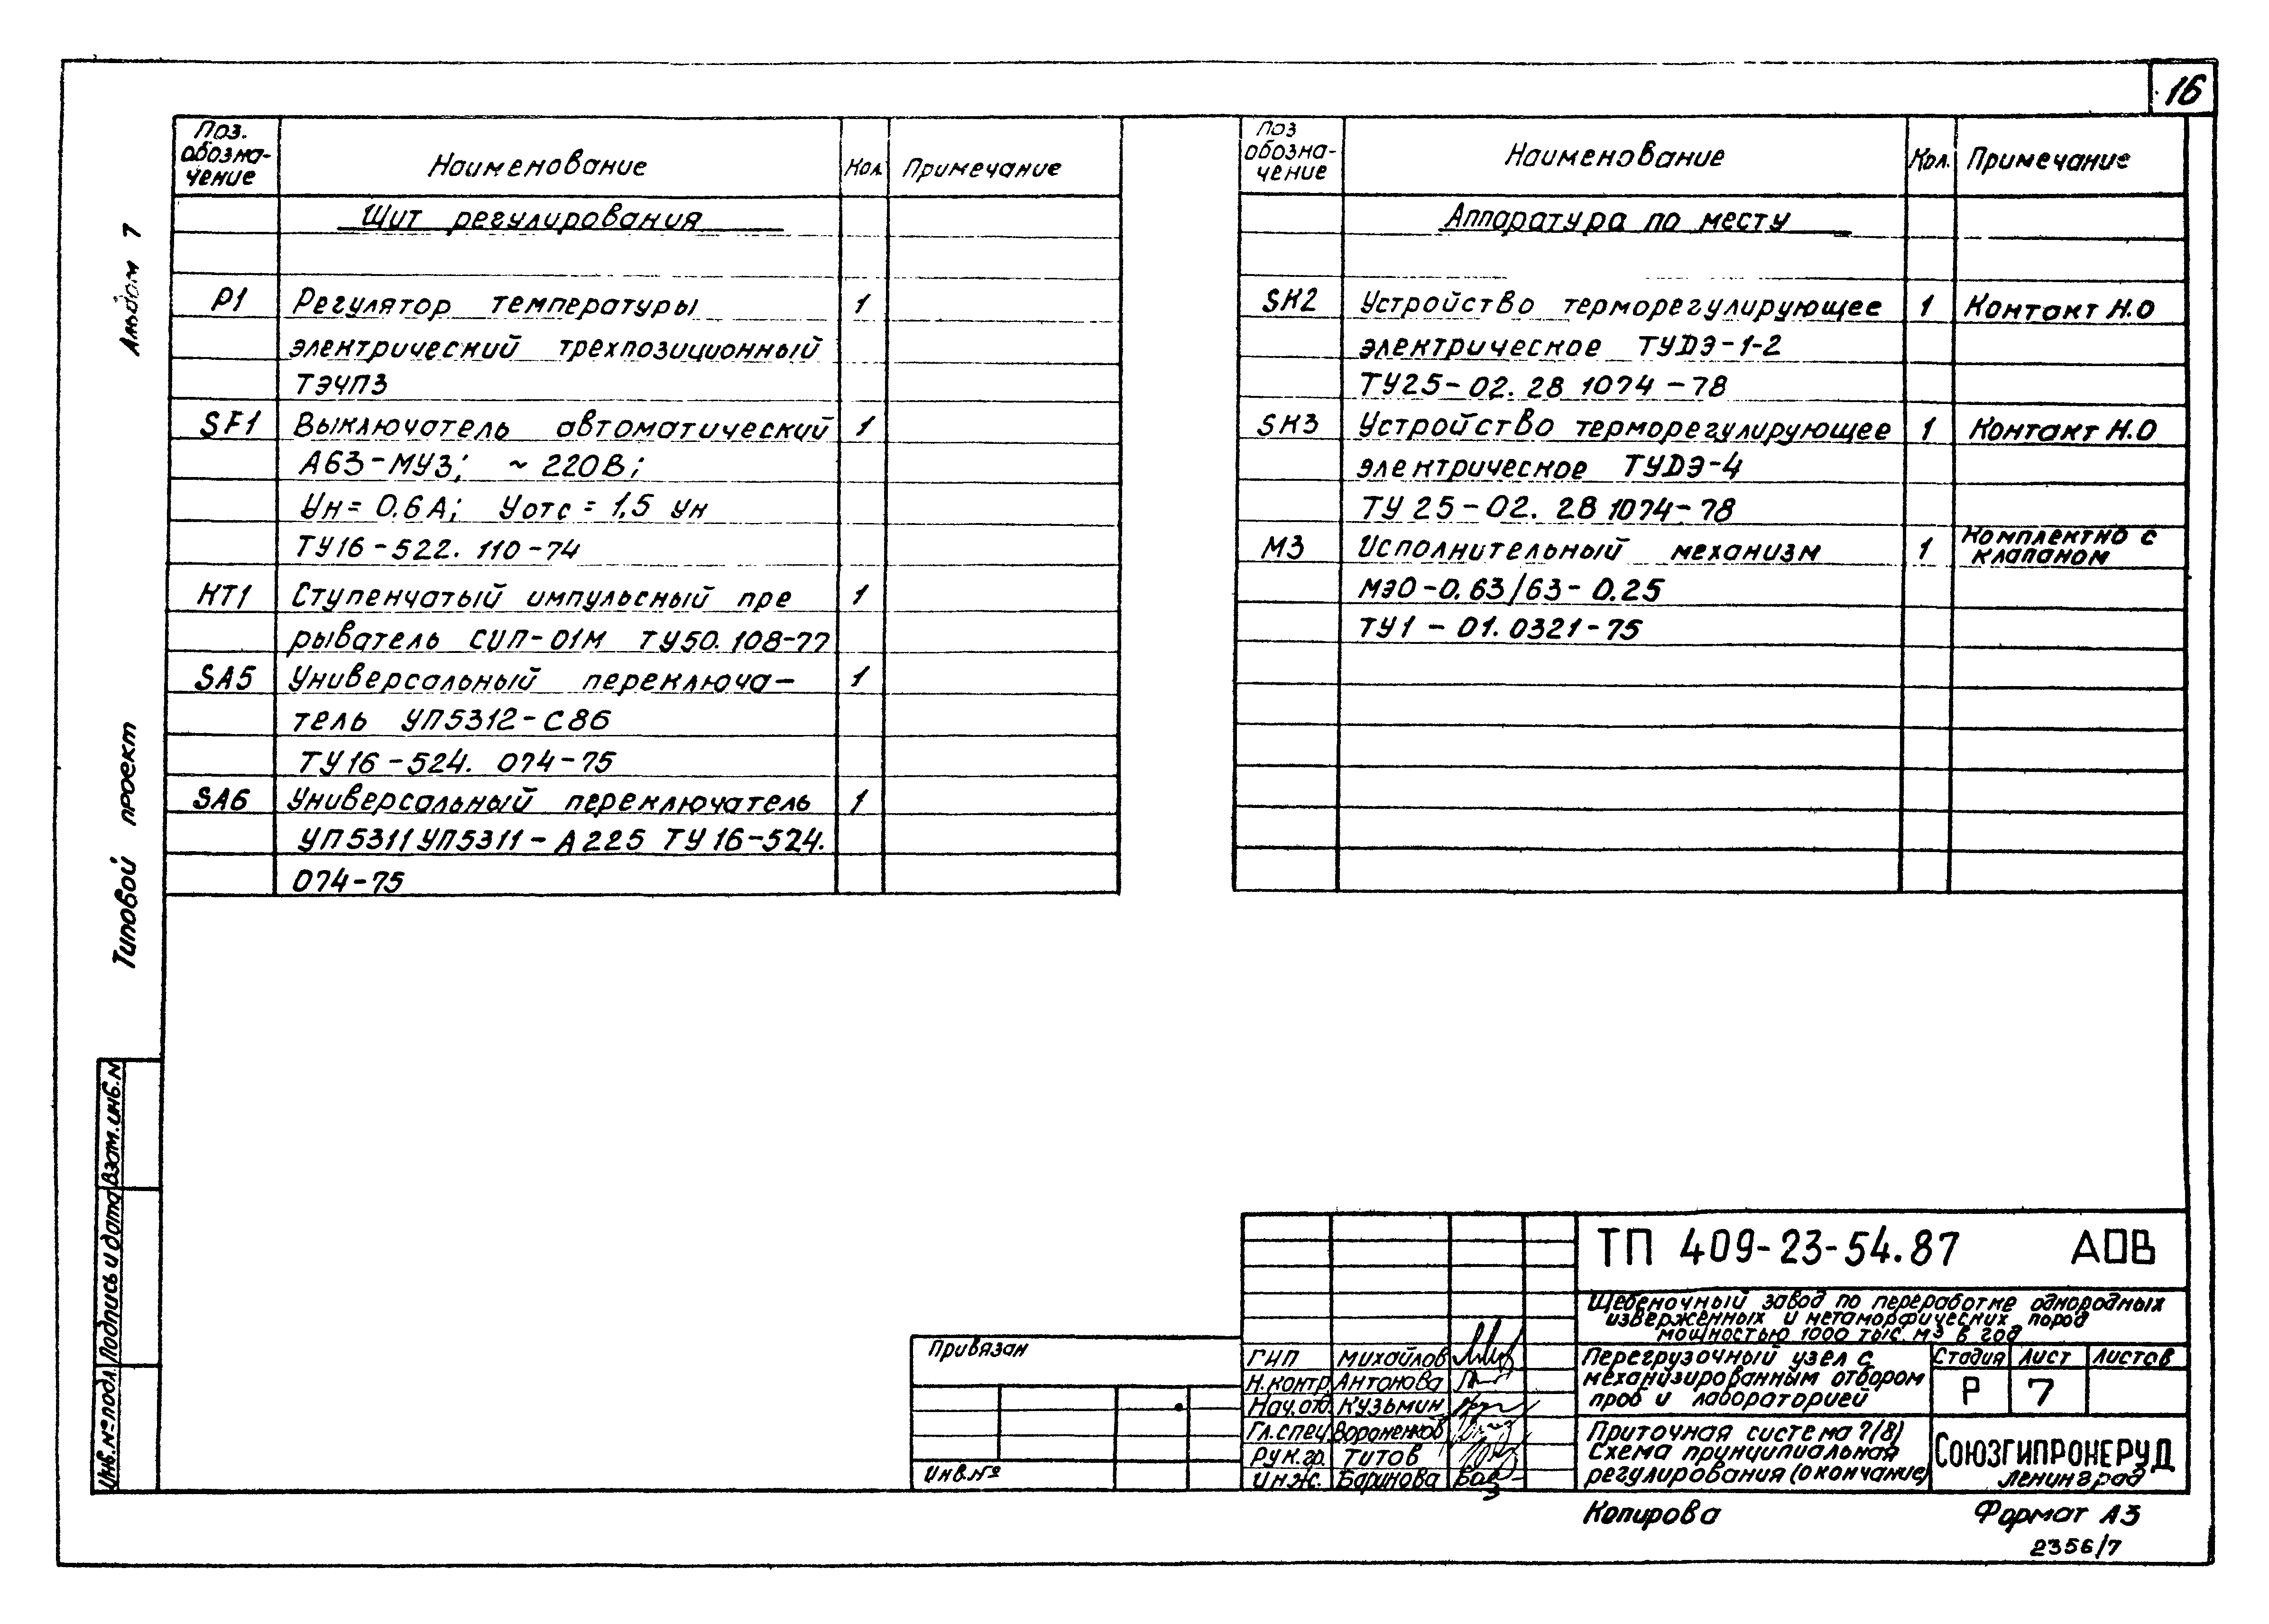 16
Альбом 7
Типовой проект
Поз. обозна-чение Наименование Кол. Примечание
Щит регулирования
Р1 Регулятор температуры 1
электрический трехпозиционный
ТЭ4П3
SF1 Выключатель автоматический 1
А63-МУ3; ~ 220В;
Ун = 0,6А; Уотс = 1,5 Ун
ТУ16-522. 110-74
КТ1 Ступенчатый импульсный пре 1
рыватель СИП-01М ТУ50.108-77
SA5 Универсальный переключа- 1
тель УП5312-С86
ТУ16-524. 074-75
SA6 Универсальный переключатель 1
УП5311 УП5311-А225 ТУ16-524.
074-75
Поз обозна-чение Наименование Кол. Примечание
Аппаратура по месту
SK2 Устройство терморегулирующее 1 Контакт Н.О
электрическое ТУДЭ-1-2
ТУ25-02. 28 1074-78
SK3 Устройство терморегулирующее 1 Контакт Н.О
электрическое ТУДЭ-4
ТУ 25-02. 28 1074-78
М3 Исполнительный механизм 1 Комплектно с клапаном
МЭО-0.63/63-0.25
ТУ1-01.0321-75
Взам.инв.N
Подпись и дата
Инв.№ подл.
Привязан
Инв.№
ТП 409-23-54.87 АОВ
Щебеночный завод по переработке однородных
изверженных и метаморфических пород
мощностью 1000 тыс. м3 в год
ГИП Михайлов
Н.контр. Антонова
Нач.отд. Кузьмин
Гл.спец. Вороненков
Рук.гр. Титов
Инж. Баринова
Перегрузочный узел с
механизированным отбором
проб и лабораторией
Стадия Лист Листов
Р 7
Приточная система 7(8)
Схема принципиальная
регулирования (окончание)
СОЮЗГИПРОНЕРУД
Ленинград
Копирова
Формат А3
2356/7